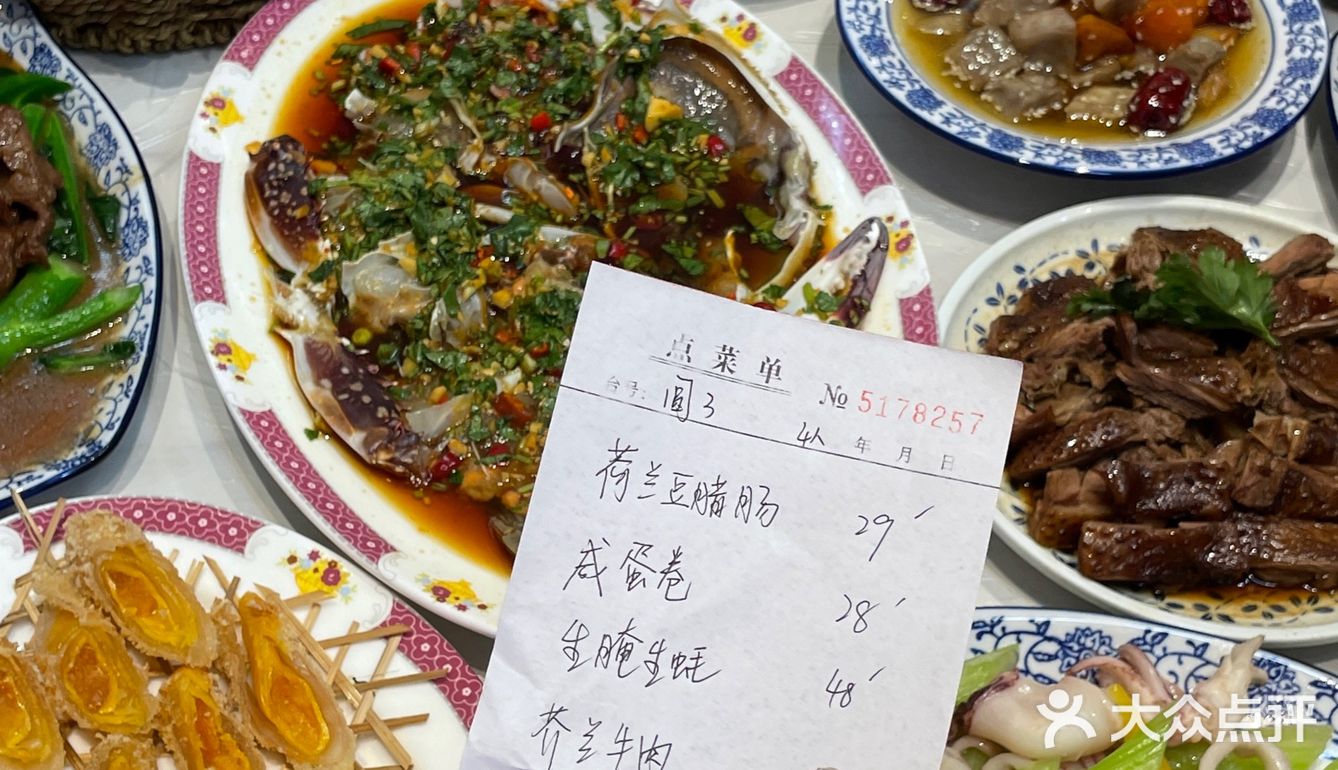 点菜单 № 5178257
台号: 圆3 4人 年 月 日
荷兰豆腊肠 29
咸蛋卷 28
生腌生蚝 48
芥兰牛肉
大众点评